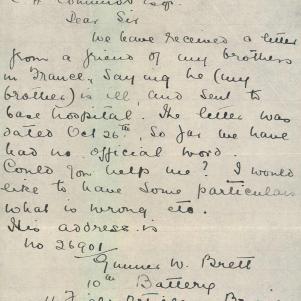 Dear Sir
We have received a letter
from a friend of my brothers
in France, saying he (my
brother) is ill, and sent to
base hospital. The letter was
dated Oct 26th. So far we have
had no official word.
Could you help me? I would
like to have some particulars
what is wrong etc.
His address is
No 26901
Gunner W. Brett
10th Battery